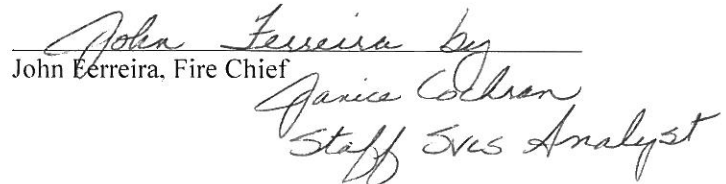 John Ferreira by
John Ferreira, Fire Chief
Janice Cochran
Staff Svcs Analyst